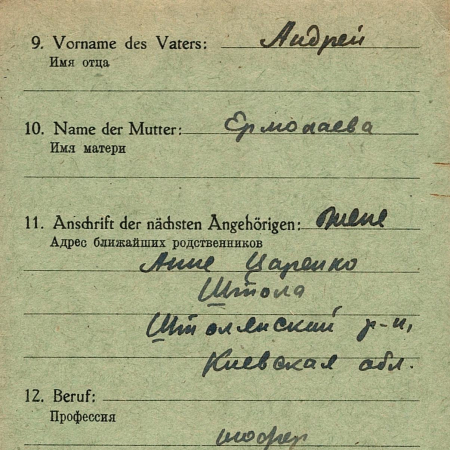 9. Vorname des Vaters: Андрей
Имя отца
10. Name der Mutter: Ермолаева
Имя матери
11. Anschrift der nächsten Angehörigen: жене
Адрес ближайших родственников
Анне Царенко
Штола
Штолянский р-н,
Киевская обл.
12. Beruf:
Профессия
шофер